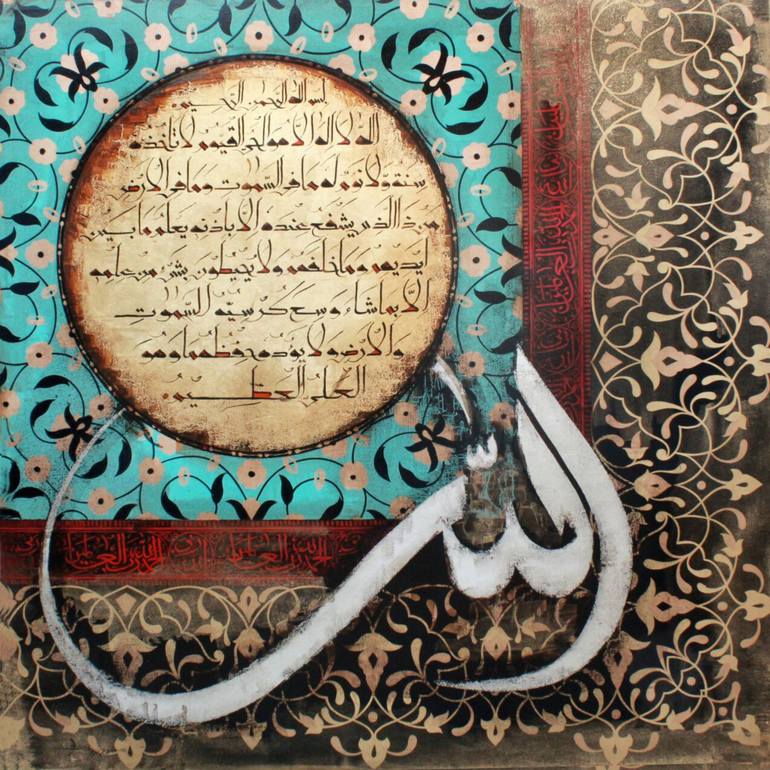 بسم الله الرحمن الرحيم
الله لا اله الا هو الحي القيوم لا تأخذه
سنة ولا نوم له ما في السموت وما في الارض
من ذا الذي يشفع عنده الا باذنه يعلم ما بين
ايديهم وما خلفهم ولا يحيطون بشئ من علمه
الا بما شاء وسع كرسيه السموت
والارض ولا يؤده حفظهما وهو
العلي العظيم
الله